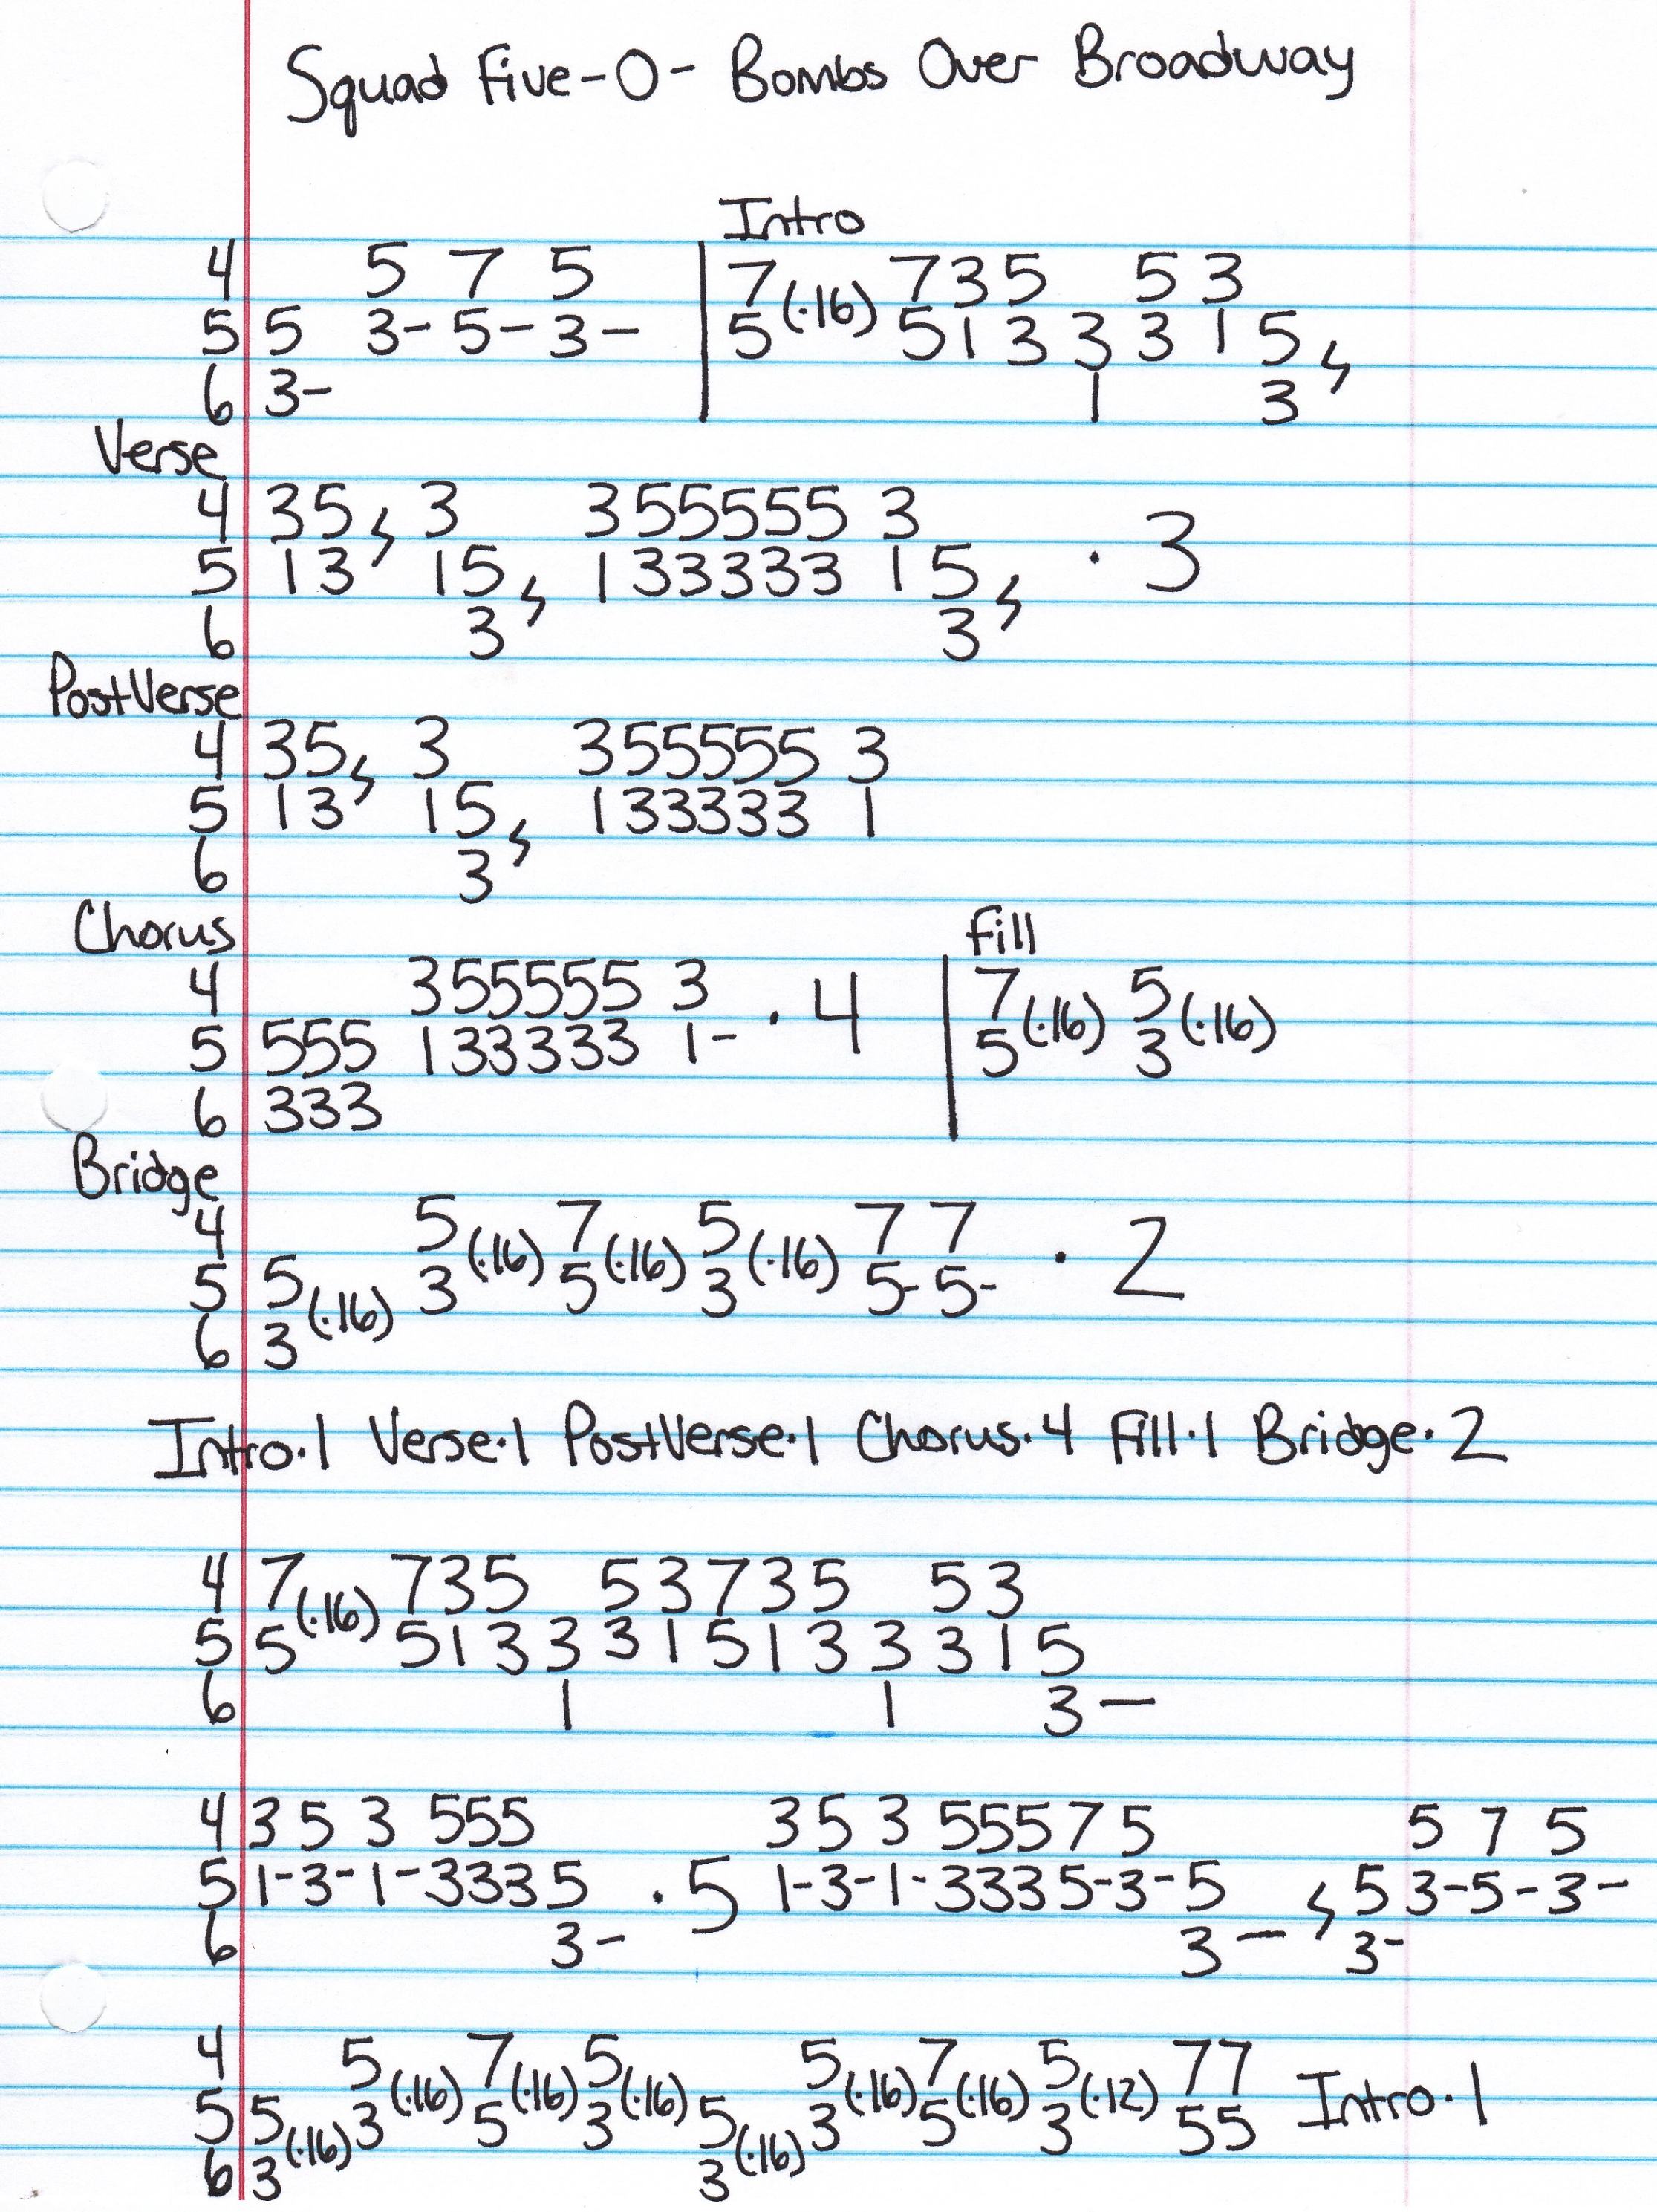 Squad Five-O- Bombs Over Broadway
Intro
4 5 7 5 | 7 (·16) 7 3 5 5 3
5 5 3- 5- 3- | 5 5 1 3 3 3 1 5 𝄽
6 3- | 1 3
Verse
4 3 5 𝄽 3 3 5 5 5 5 5 3 · 3
5 1 3 1 5 𝄽 1 3 3 3 3 3 1 5 𝄽
6 3 3
PostVerse
4 3 5 𝄽 3 3 5 5 5 5 5 3
5 1 3 1 5 𝄽 1 3 3 3 3 3 1
6 3
Chorus Fill
4 3 5 5 5 5 5 3 · 4 | 7 (·16) 5 (·16)
5 5 5 5 1 3 3 3 3 3 1- | 5 3
6 3 3 3
Bridge
4 5 (·16) 7 (·16) 5 (·16) 7 7 · 2
5 5 (·16) 3 5 3 5- 5-
6 3
Intro·1 Verse·1 PostVerse·1 Chorus·4 Fill·1 Bridge·2
4 7 (·16) 7 3 5 5 3 7 3 5 5 3
5 5 5 1 3 3 3 1 5 1 3 3 3 1 5
6 1 1 3-
4 3 5 3 5 5 5 3 5 3 5 5 5 7 5 5 7 5
5 1-3-1-3 3 3 5 ·5 1-3-1-3 3 3 5-3-5 𝄽 5 3-5-3-
6 3- 3- 3-
4 5 (·16) 7 (·16) 5 (·16) 5 (·16) 7 (·16) 5 (·12) 7 7 Intro·1
5 5 (·16) 3 5 3 5 (·16) 3 5 3 5 5
6 3 3